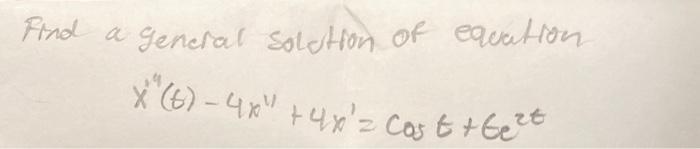 Find a general solution of equation
x'''(t) - 4x'' + 4x' = cos t + 6e^{2t}